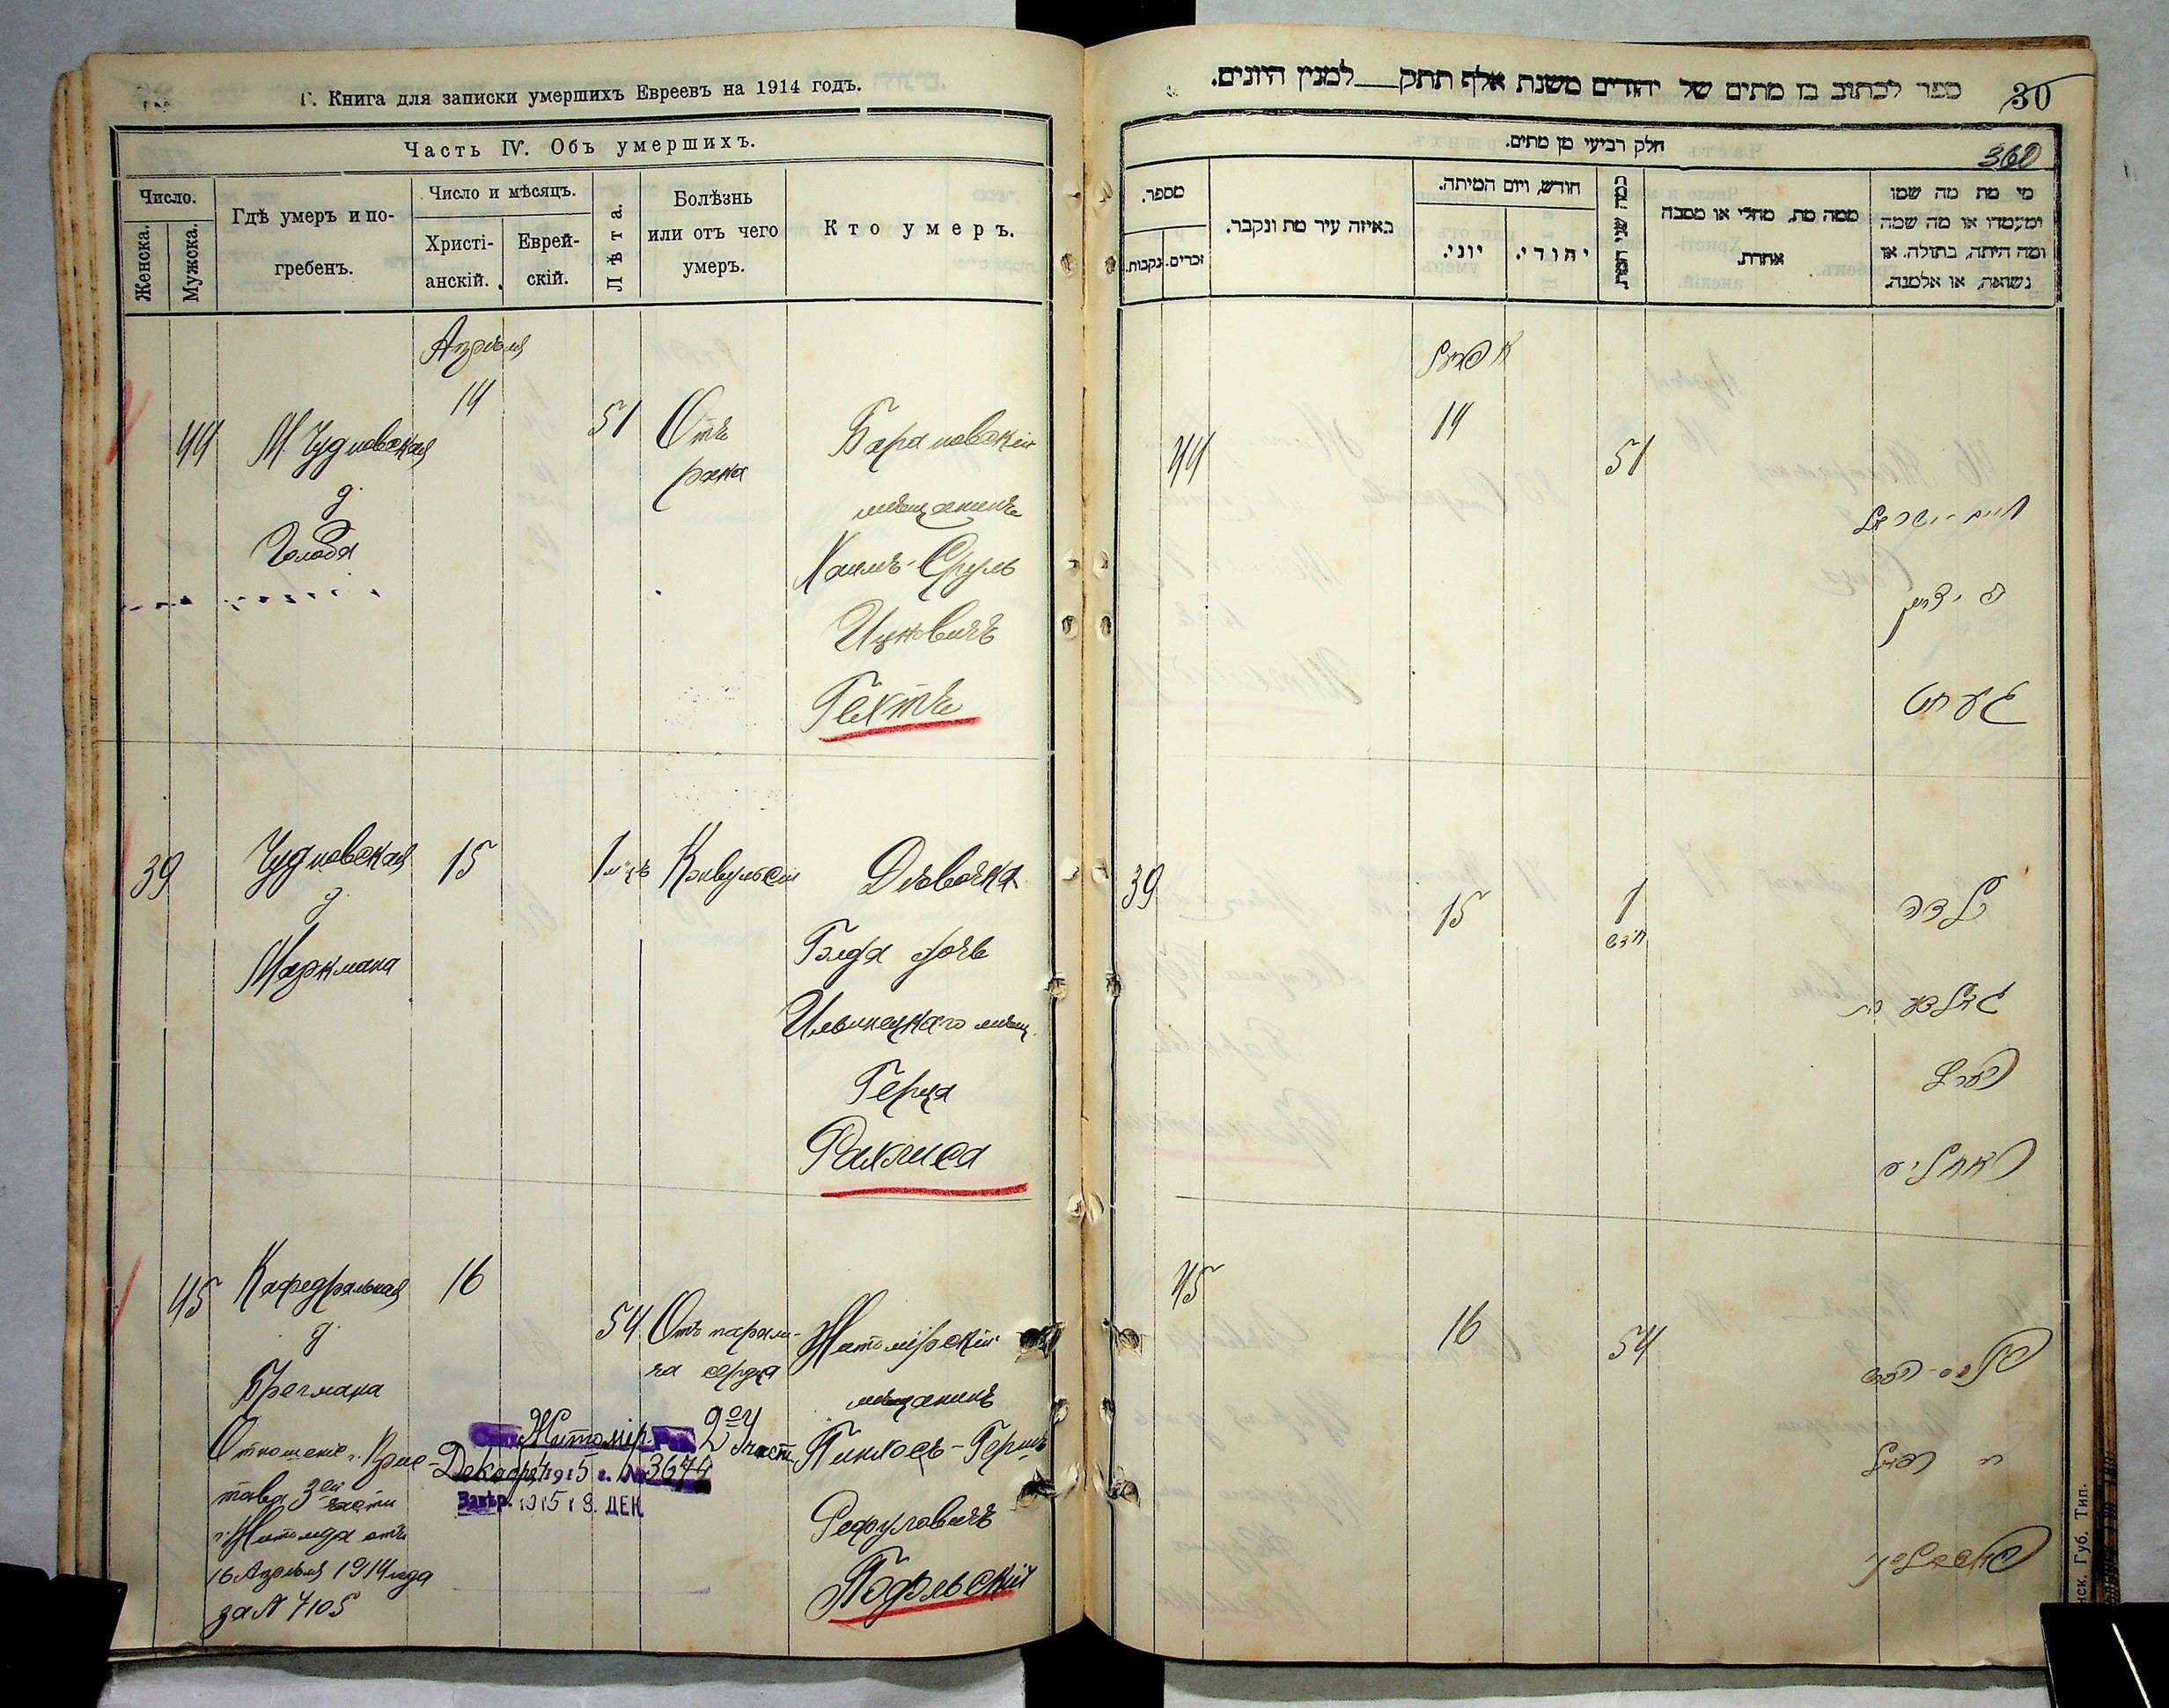 Г. Книга для записки умершихъ Евреевъ на 1914 годъ.
Часть IV. Объ умершихъ.
Число.
Женска.
Мужска.
Гдѣ умеръ и по-
гребенъ.
Число и мѣсяцъ.
Христі-
анскій.
Еврей-
скій.
Лѣта.
Болѣзнь
или отъ чего
умеръ.
Кто умеръ.
Апрѣля
44
М. Чудновская
д.
Голода
14
51
Отъ
рака
Барановскій
мѣщанинъ
Хаимъ-Сруль
Ицковичъ
Гехтъ
39
Чудновская
д.
Маркмана
15
1 м-цъ
Конвульсіи
Дѣвочка
Голда дочь
Ильинецкаго мѣщ.
Герца
Рахлиса
45
Кафедральная
д.
Брегмана
16
54
Отъ парали-
ча сердца
Житомірскій
мѣщанинъ
Пинхосъ-Гершъ
Рефуловичъ
Подольскій
Отношеніе г. Прис-
тава 3ей части
г. Житоміра отъ
16 Апрѣля 1914 года
за № 7105
Житомір. 2оу Участ.
Декабря 1915 г. № 3674
Завѣр. 1915 18. ДЕК
ספר לכתוב בו מתים של יהודים משנת אלף תתק למנין היונים.
30
360
חלק רביעי מן מתים.
מספר.
נקבות.
זכרים.
באיזה עיר מת ונקבר.
חודש, ויום המיתה.
יוני.
יהודי.
כמה שני המת
ממה מת, מחלי או מסבה
אחרת.
מי מת מה שמו
ומעמדו או מה שמה
ומה היתה, בתולה, או
נשואה, או אלמנה.
אפריל
44
14
51
חיים-ישראל
געחט
39
15
1
חדש
ילדה
גאלדע בת
הערץ
ראחליס
45
16
54
פנחס-הירש
פאדאלסקי
нск. Губ. Тип.